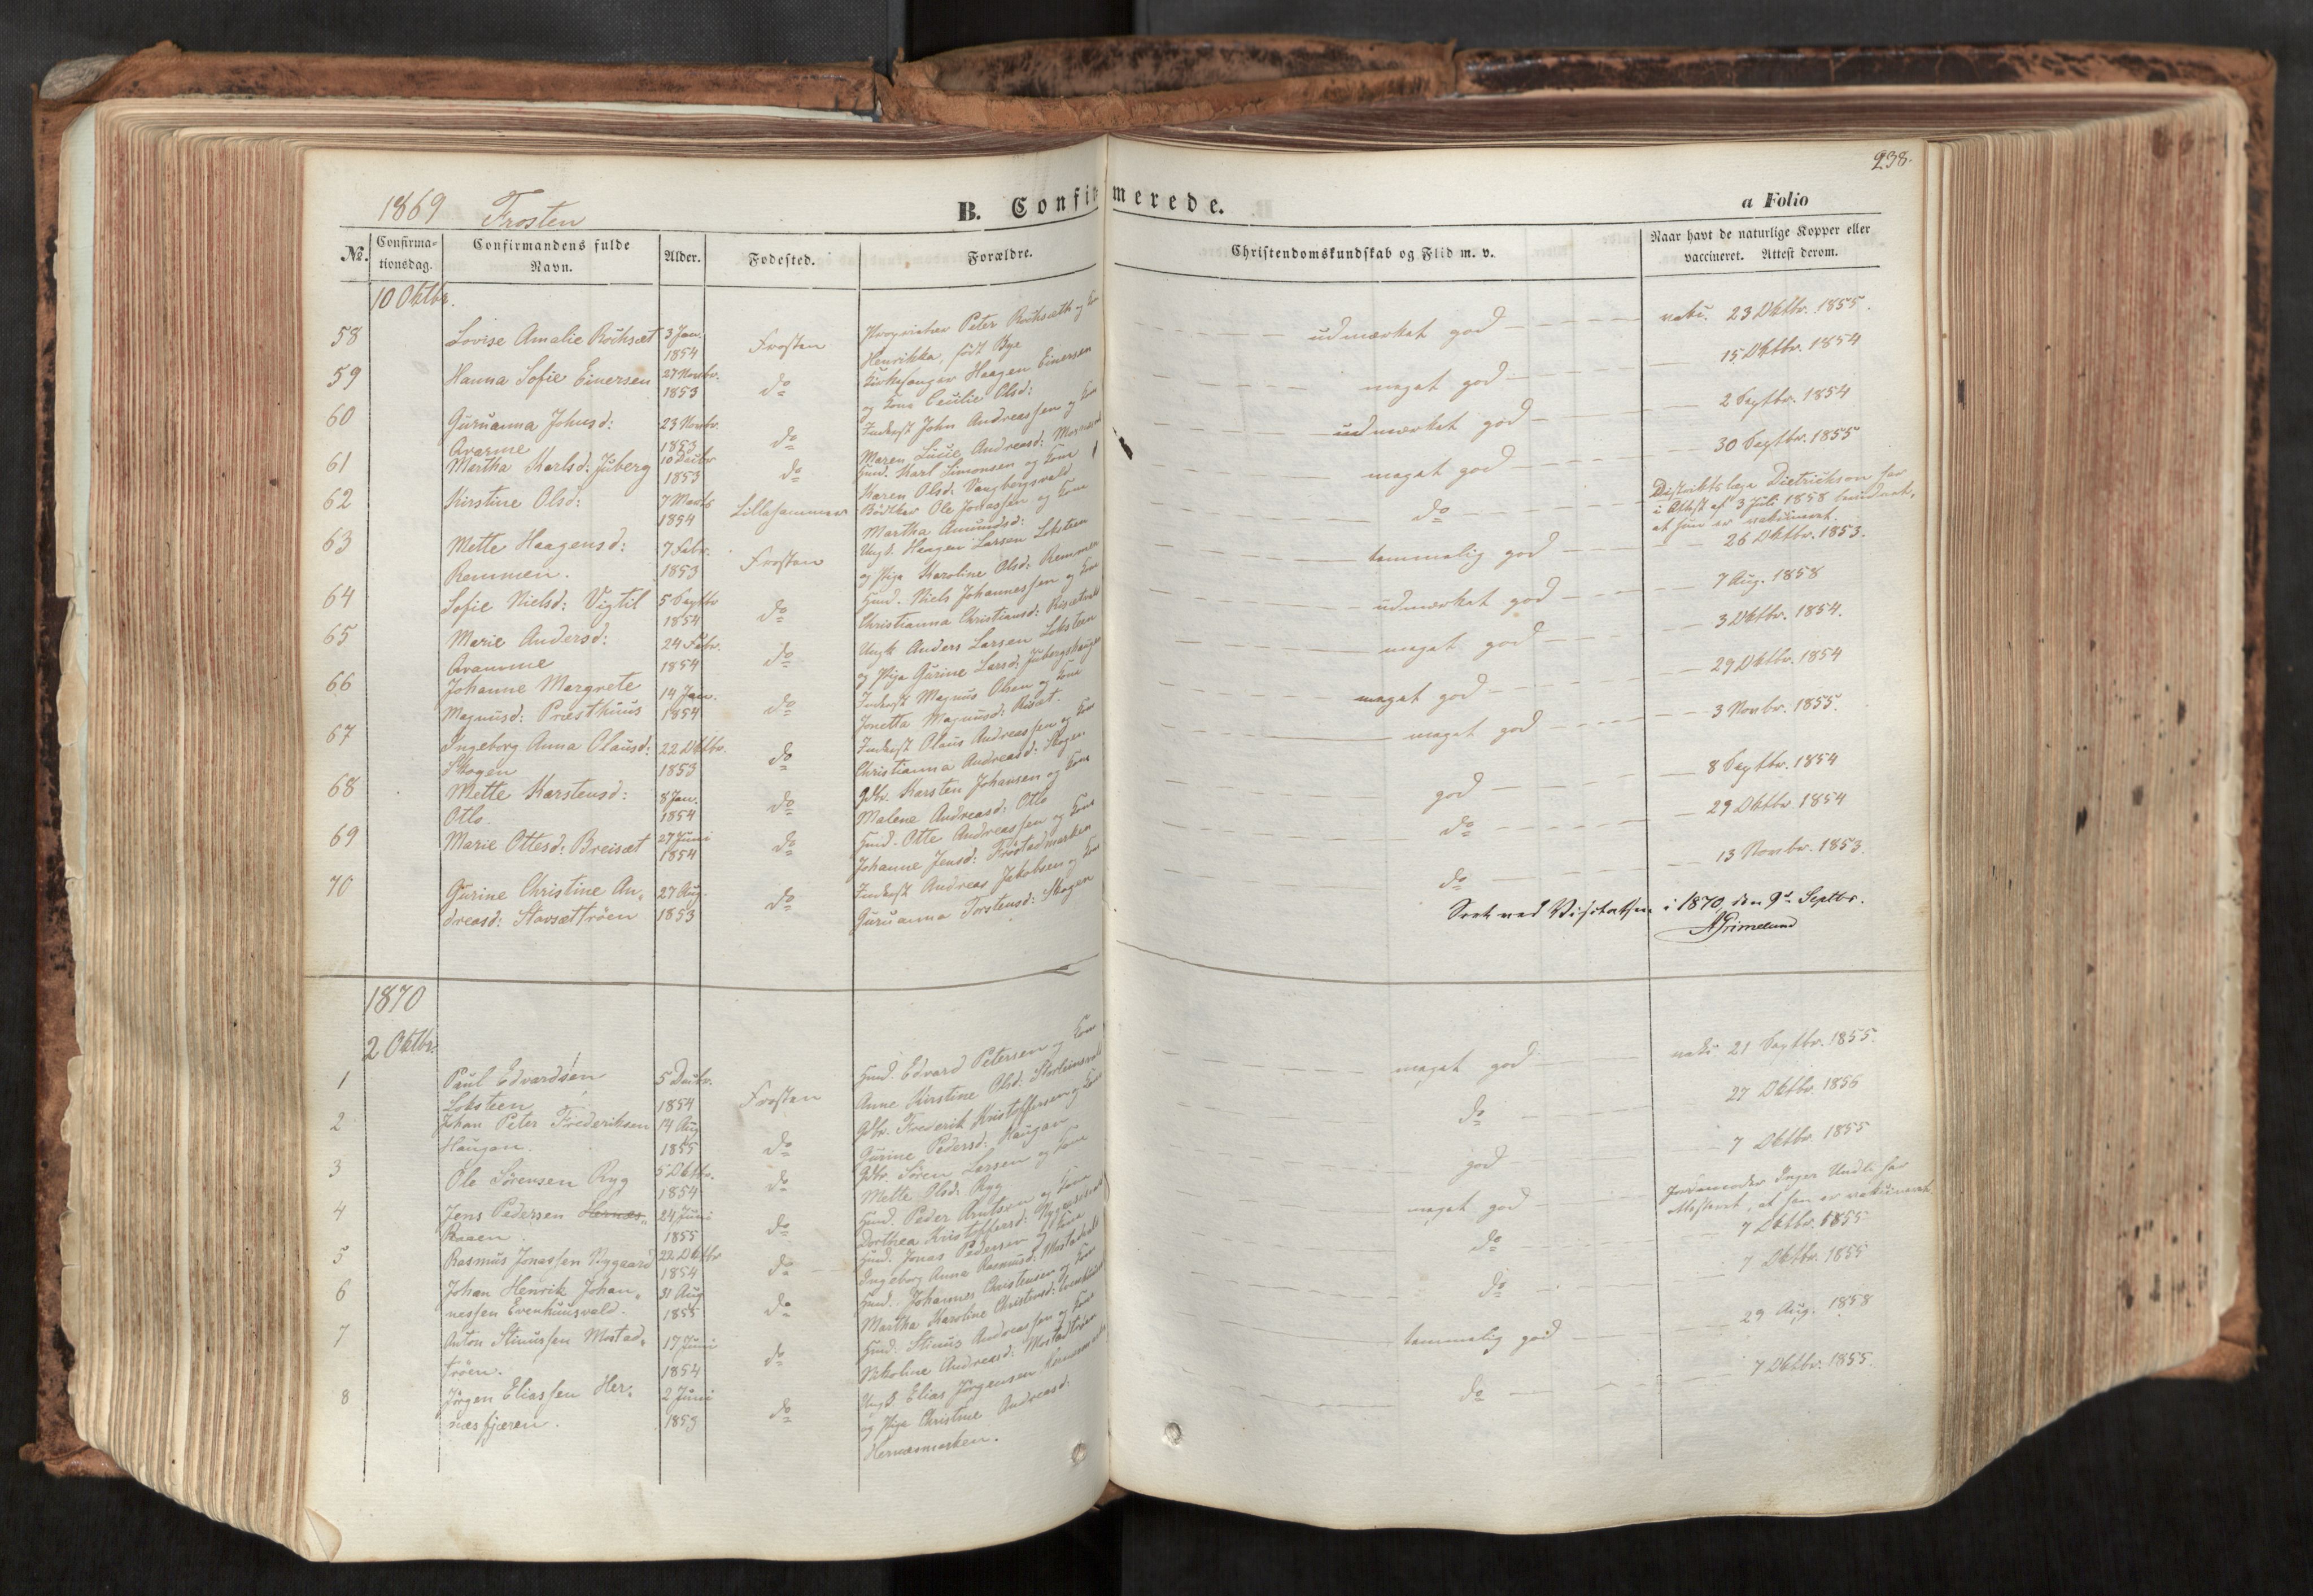 238.
1869 Frosten
B. Confirmerede.
a Folio
No.
Confirmationsdag.
Confirmandens fulde Navn.
Alder.
Fødested.
Forældre.
Christendomskundskab og Flid m. v.
Naar havt de naturlige Kopper eller vaccineret. Attest derom.
10 Oktbr.
58 Lovise Amalie Rochsæt 3 Jan. 1854 Frosten Peter Rochsæth og Henrikka, født Bye udmærket god vakc. 23 Oktbr. 1855.
59 Hanna Sofie Einersen 27 Novbr. 1853 do Kirkesanger Haagen Einersen og Kone Cecilie Olsd: meget god 15 Oktbr. 1854
60 Guruanna Johnsd: Avarme 23 Novbr. 1853 do Inderst John Andreassen og Kone Maren Lucie Andreasd: udmærket god 2 Septbr. 1854
61 Martha Karlsd: Juberg 10 Decbr 1853 do Husmd. Karl Simonsen og Kone Karen Olsd: Vangbergsvald meget god 30 Septbr. 1855
62 Kirstine Olsd: 7 Marts 1854 Lillehammer Bødker Ole Jonassen og Kone Martha Amundsd: do Distriktslæge Dietrichson har
i Attest af 3 Juli 1858 bevidnet,
at hun er vakcineret.
63 Mette Haagensd: Remmen. 7 Febr. 1853 Frosten Ungk. Haagen Larsen Loksteen og Pige Karoline Olsd: Remmen temmelig god 26 Oktbr. 1853.
64 Sofie Nielsd: Vigtil 5 Septbr 1854 do Husmd. Niels Johannessen og Kone Christianna Christiansd: udmærket god 7 Aug. 1858
65 Marie Andersd: Avarme 24 Febr. 1854 do Ungk Anders Larsen Loksteen og Pige Gurine Larsd: Jubergshaugen meget god 3 Oktbr. 1854.
66 Johanne Margrete Magnusd: Præsthuus 14 Jan. 1854 do Inderst Magnus Olsen og Kone Jonetta Magnusd: meget god 29 Oktbr. 1854
67 Ingeborg Anna Olausd: Skogen 22 Oktbr. 1853 do Inderst Olaus Andreassen og Kone Christianna Andreasd: Skogen. meget god 3 Novbr. 1855.
68 Mette Karstensd: Otlo. 8 Jan. 1854 do Gdbr. Karsten Johansen og Kone Malene Andreasd: Otlo god 8 Septbr. 1854
69 Marie Ottesd: Breisæt 27 Juni 1854 do Husmd. Otte Andreassen og Kone Johanne Jensd: Frostadmarken do 29 Oktbr. 1854
70 Gurine Christine Andreasd: Stavsættrøen 27 Aug. 1853 do Inderst Andreas Jakobsen og Kone Guruanna Torstensd: Skogen do 13 Novbr. 1853.
Seet ved Visitatsen i 1870, den 9de Septbr.
AGrimelund
1870
2 Oktbr.
1 Paul Edvardsen Loksteen 5 Decbr. 1854 Frosten Husmd. Edvard Petersen og Kone Anne Kirstine Olsd: meget god vakc. 21 Septbr. 1855.
2 Johan Peter Frederiksen Haugan. 14 Aug 1855 do Gdbr. Frederik Kristoffersen og Kone Gurine Pedersd: Haugan do 27 Oktbr. 1856
3 Ole Sørensen Ryg 5 Oktbr. 1854 do Gdbr. Søren Larsen og Kone Mette Olsd: Ryg god 7 Oktbr. 1855
4 Jens Pedersen Hernæs- Raaen. 24 Juni 1855 do Husmd. Peder Arntsen og Kone Dorthea Kristoffersd: meget god Jordemoder Inger Undli har
Attesteret, at han er vakcineret.
5 Rasmus Jonassen Nygaard 22 Oktbr 1854 do Husmd. Jonas Pedersen og Kone Ingeborg Anna Rasmusd: do 7 Oktbr. 1855
6 Johan Henrik Johannessen Evenhuusvald. 31 Aug 1855 do Husmd. Johannes Christensen og Kone Martha Karoline Christensd: do 7 Oktbr. 1855
7 Anton Stinussen Mostadtrøen. 17 Juni 1854 do Husmd. Stinus Andreassen og Kone Nikoline Andreasd: Mostadtrøen temmelig god 29 Aug. 1858
8 Jørgen Eliassen Hernæsfjæren. 2 Juni 1853 do Ungk. Elias Jørgensen og Pige Christine Andreasd: Hernæsmarken. do 7 Oktbr. 1855.